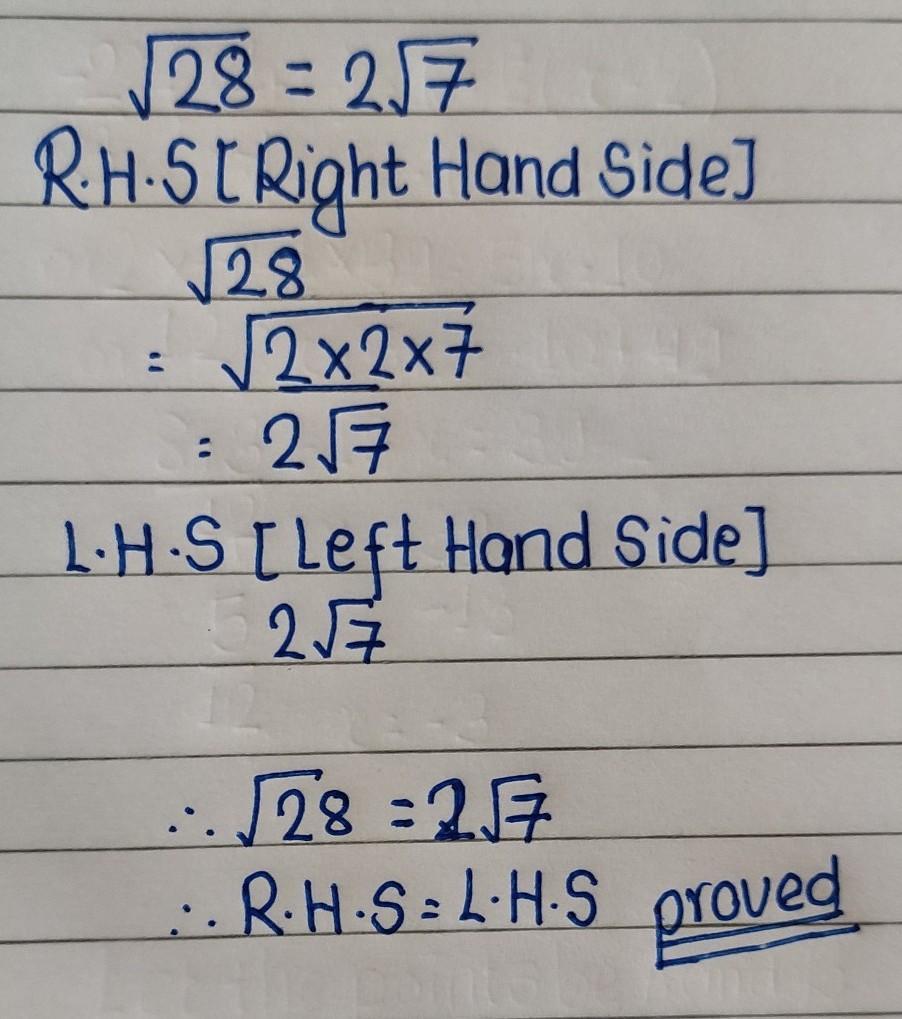 √28 = 2√7
R.H.S [Right Hand Side]
√28
= √2×2×7
= 2√7
L.H.S [Left Hand Side]
2√7
∴ √28 = 2√7
∴ R.H.S = L.H.S proved